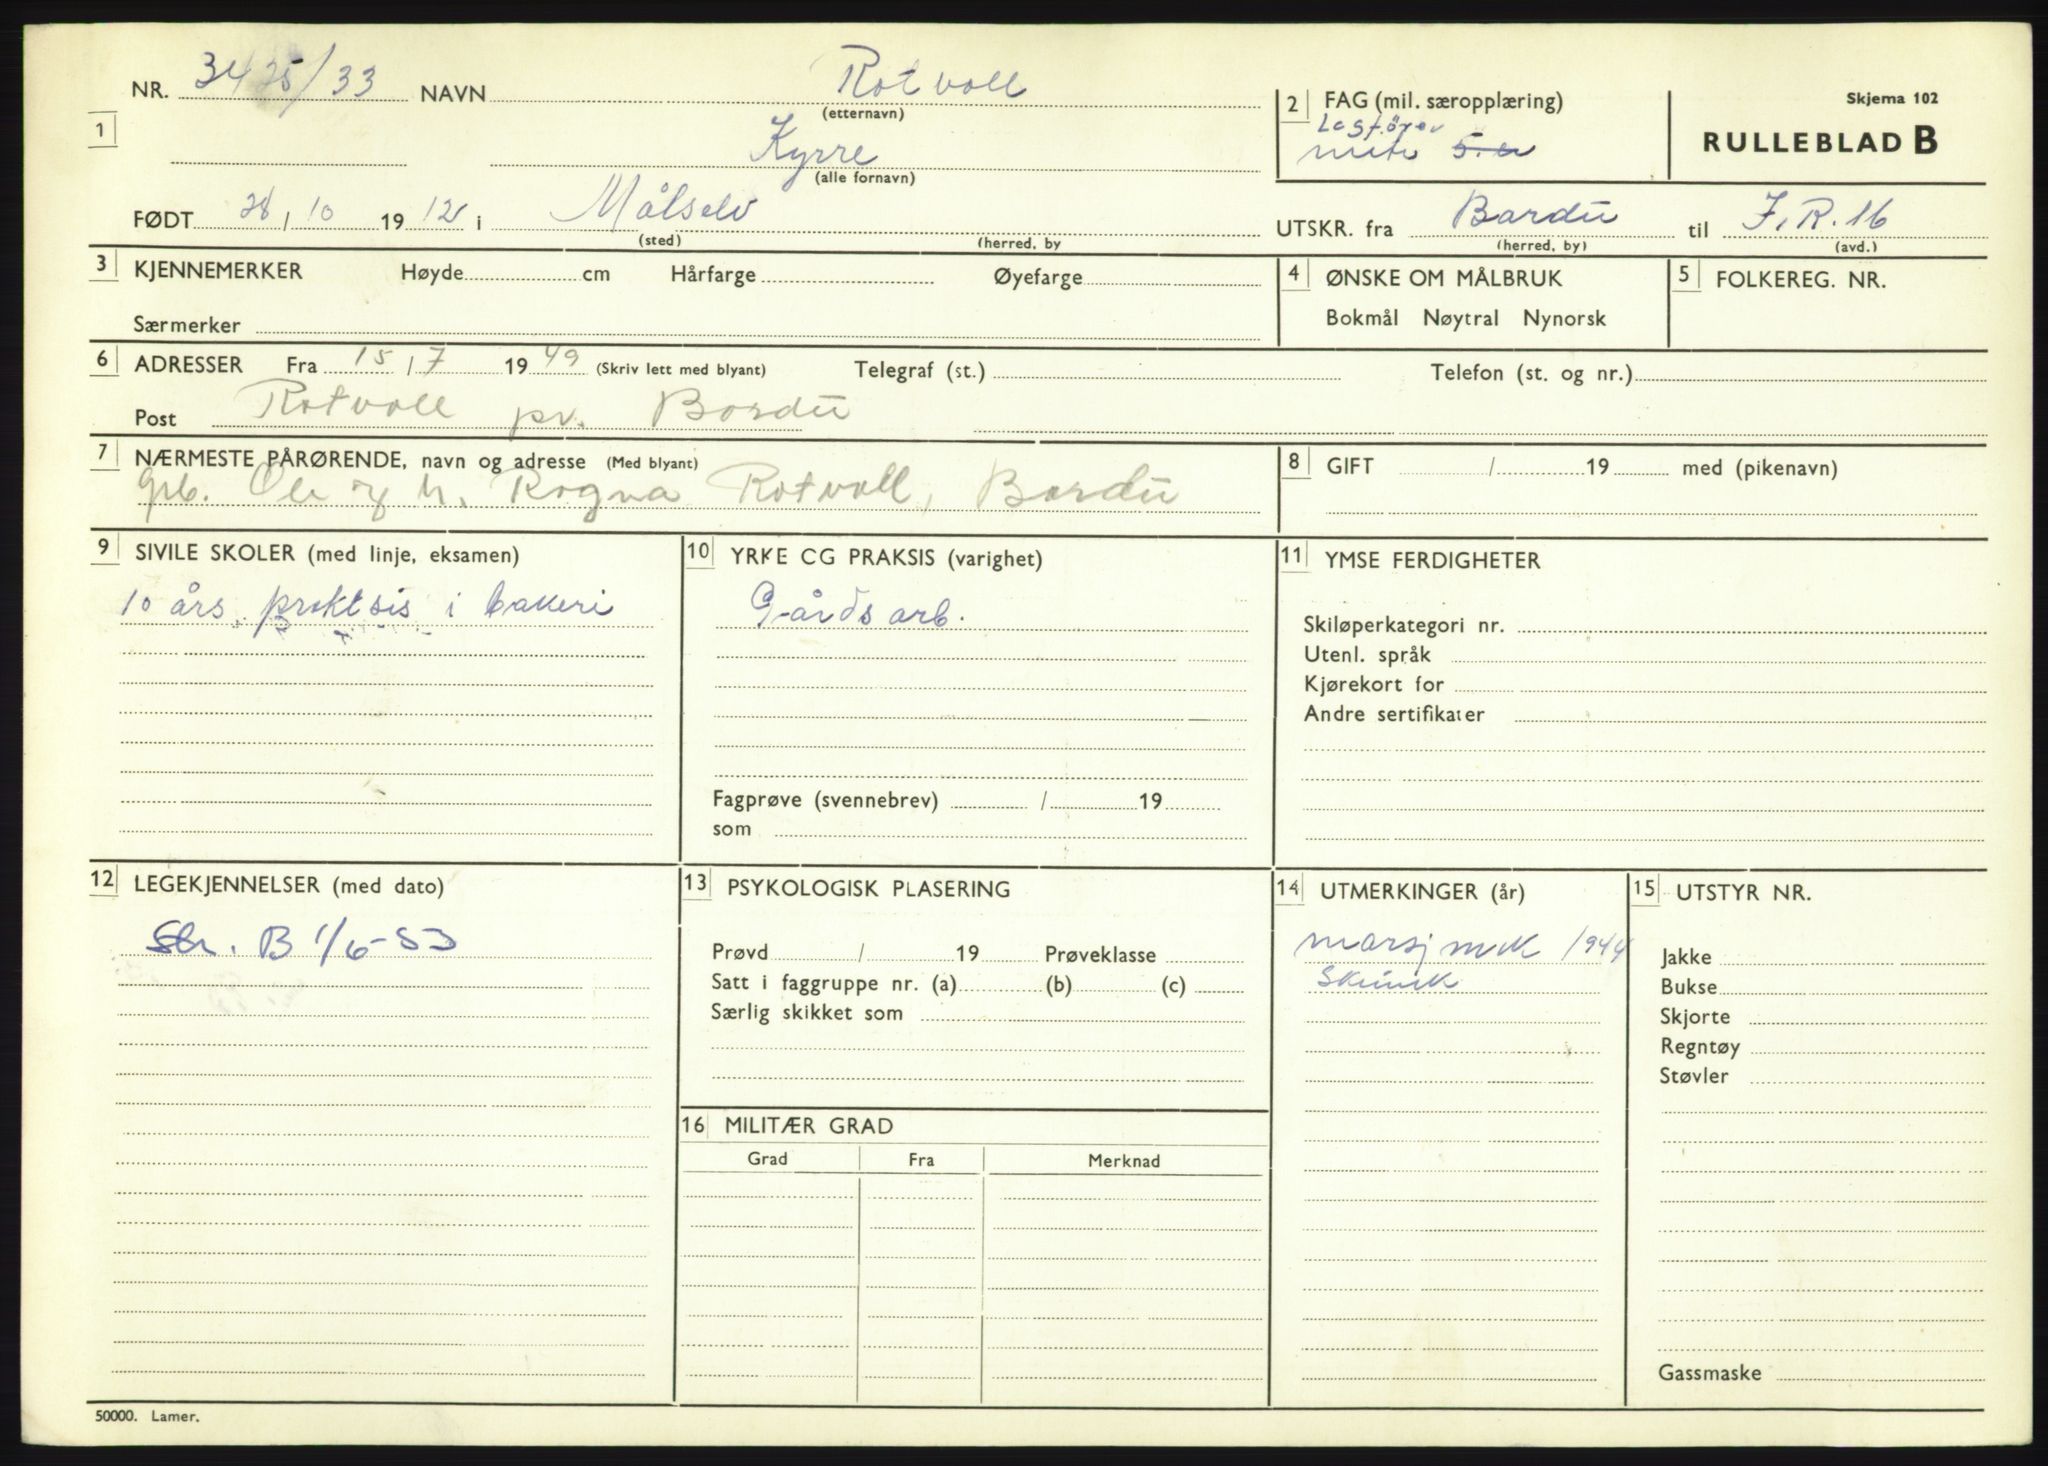 Skjema 102
RULLEBLAD B
NR. 3425/33 NAVN Rotvoll
(etternavn)
1
Kyrre
(alle fornavn)
FØDT 28/10 1912 i Målselv
(sted) (herred, by
2 FAG (mil. særopplæring)
Lagfører
mitr
UTSKR. fra Bardu til I.R. 16
(herred, by) (avd.)
3 KJENNEMERKER Høyde cm Hårfarge Øyefarge
Særmerker
4 ØNSKE OM MÅLBRUK
Bokmål Nøytral Nynorsk
5 FOLKEREG. NR.
6 ADRESSER Fra 15/7 1949 (Skriv lett med blyant) Telegraf (st.) Telefon (st. og nr.)
Post Rotvoll pr. Bardu
7 NÆRMESTE PÅRØRENDE, navn og adresse (Med blyant)
grb. Ole og h. Ragna Rotvoll, Bardu
8 GIFT / 19 med (pikenavn)
9 SIVILE SKOLER (med linje, eksamen)
10 års praktsis i bakeri
10 YRKE CG PRAKSIS (varighet)
Gårdsarb.
Fagprøve (svennebrev) / 19
som
11 YMSE FERDIGHETER
Skiløperkategori nr.
Utenl. språk
Kjørekort for
Andre sertifikater
12 LEGEKJENNELSER (med dato)
Str. B 1/6-53
13 PSYKOLOGISK PLASERING
Prøvd / 19 Prøveklasse
Satt i faggruppe nr. (a) (b) (c)
Særlig skikket som
14 UTMERKINGER (år)
marsjmrk 1944
Skimrk
15 UTSTYR NR.
Jakke
Bukse
Skjorte
Regntøy
Støvler
Gassmaske
16 MILITÆR GRAD
Grad Fra Merknad
50000. Lamer.